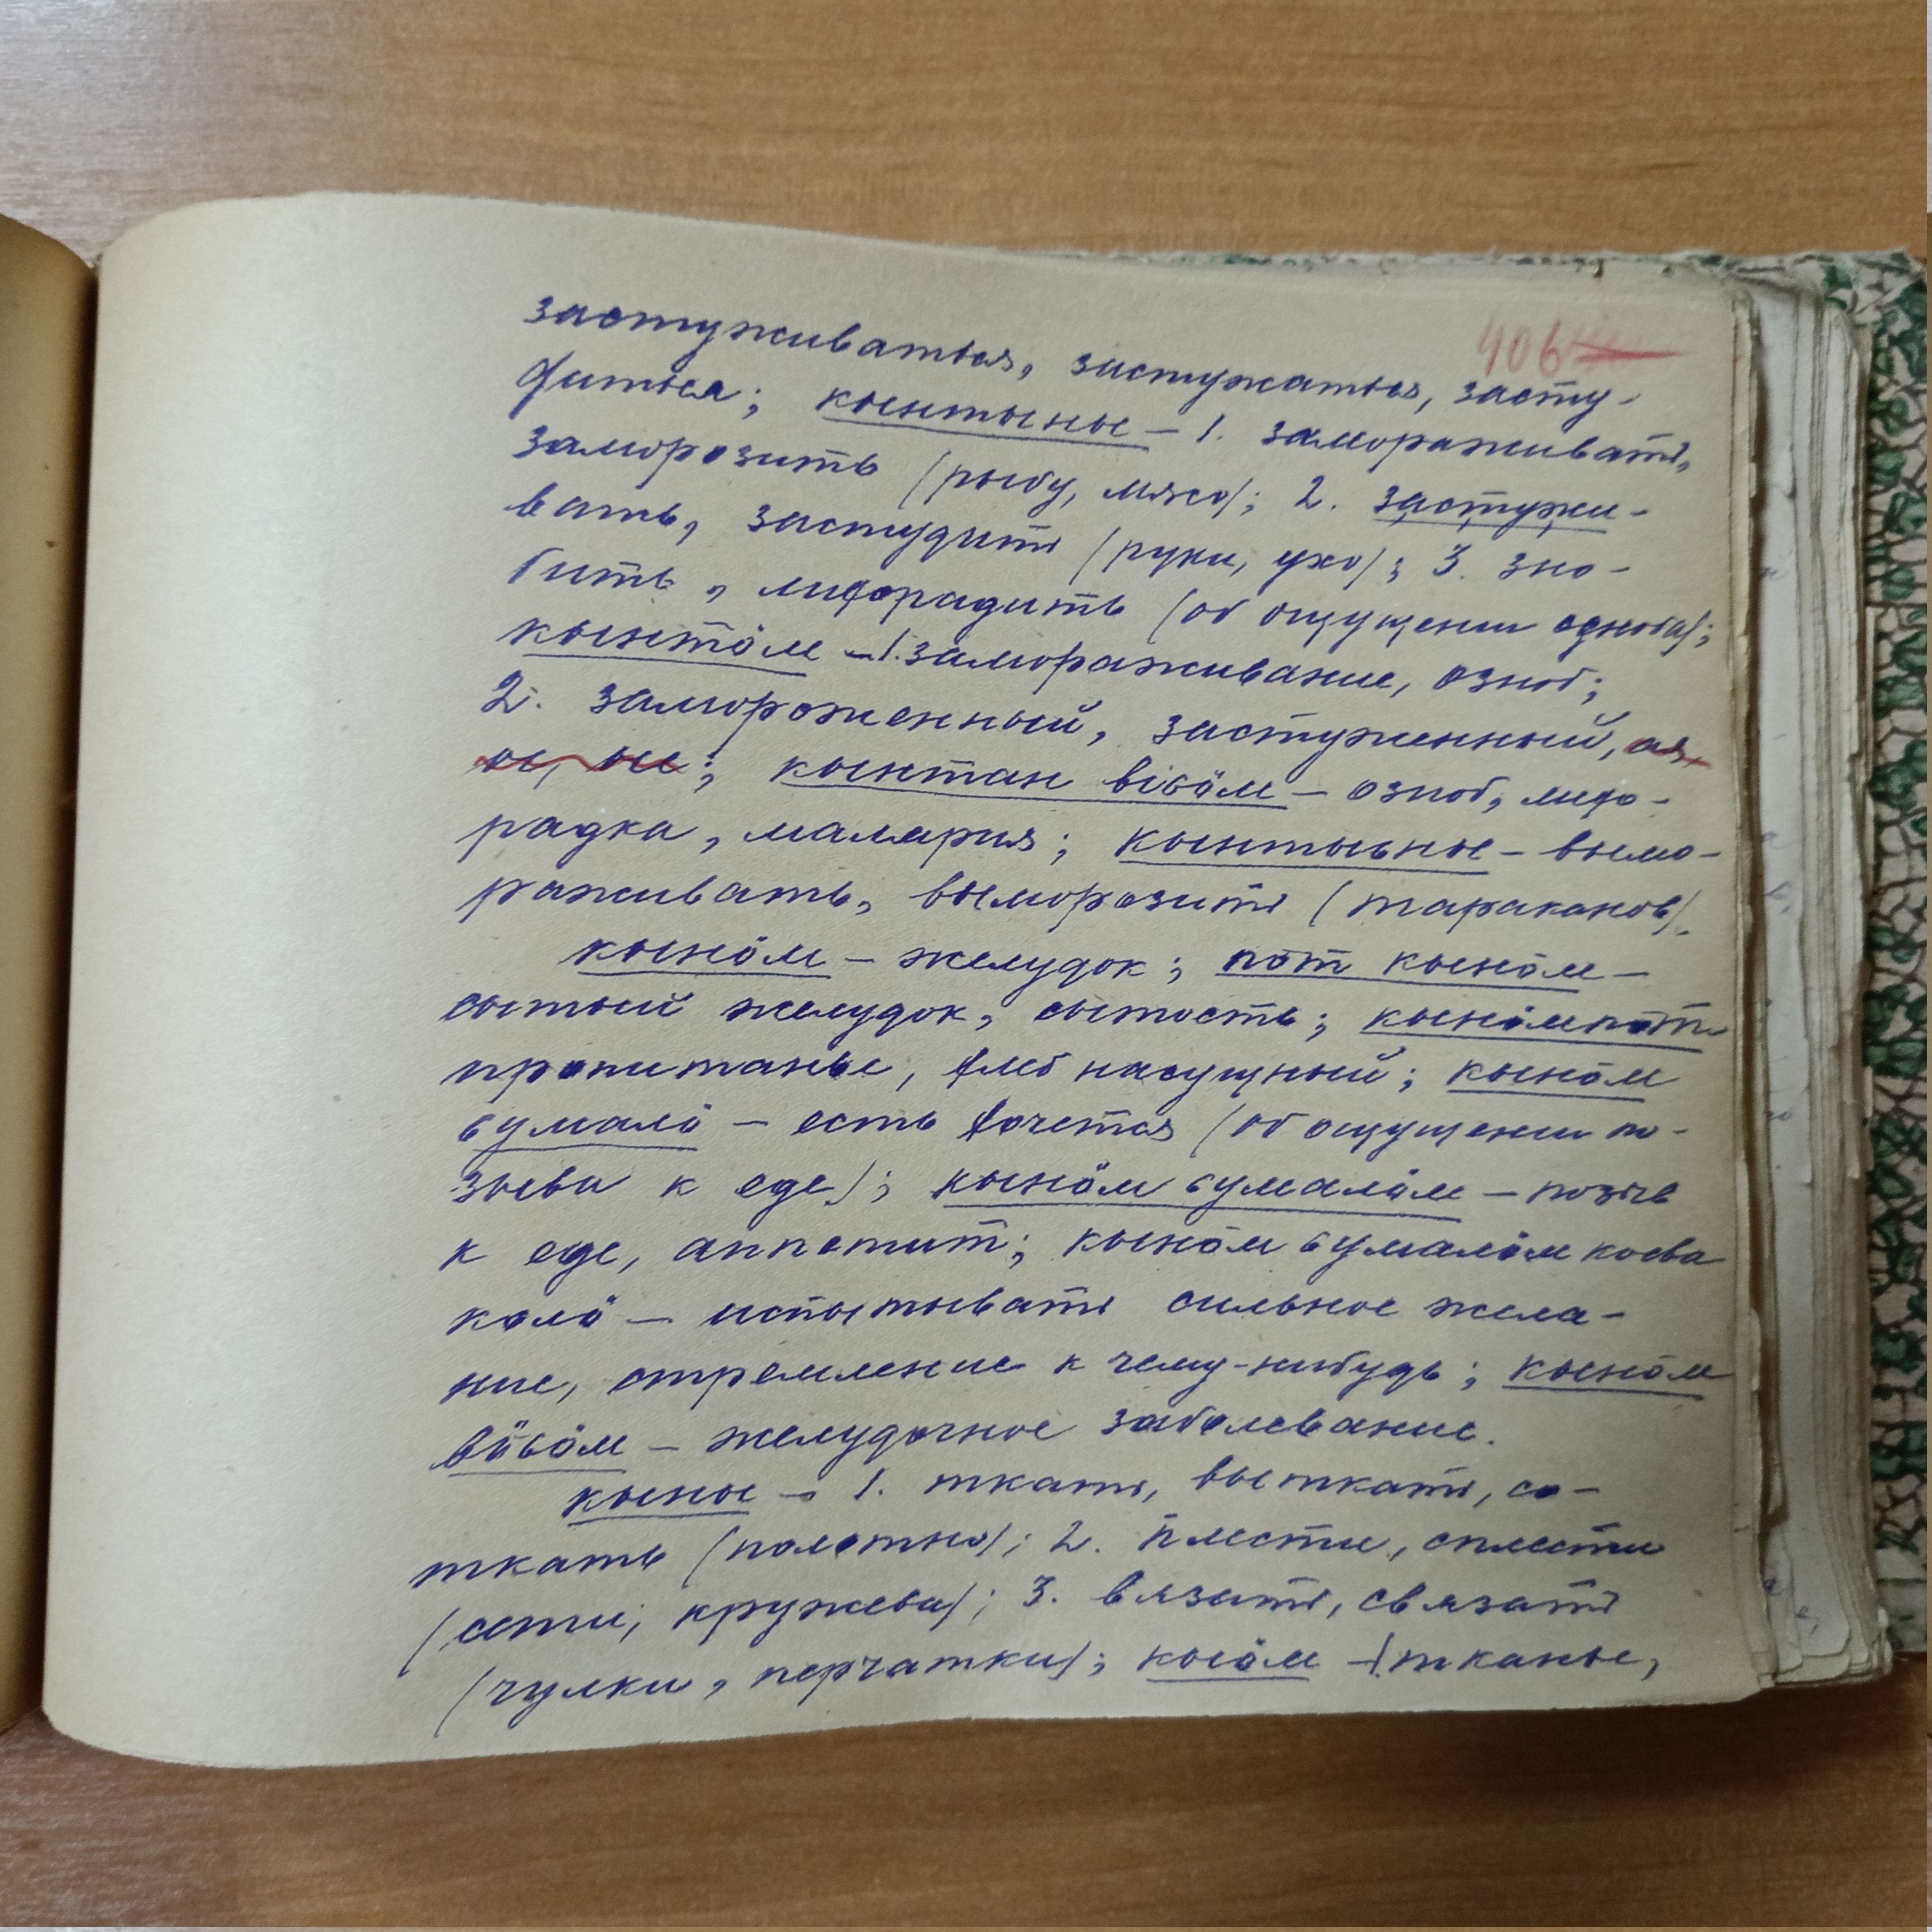 406
застуживаться, застужаться, засту-
диться; кынтыны – 1. замораживать,
заморозить (рыбу, мясо); 2. застужи-
вать, застудить (руки, ухо); 3. зно-
бить, лихорадить (об ощущении озноба);
кынтӧм – 1. замораживание, озноб;
2. замороженный, застуженный, ая,
ое, ые; кынтан висьӧм – озноб, лихо-
радка, малярия; кынтывны – вымо-
раживать, выморозить (тараканов).
кынӧм – желудок; пӧт кынӧм –
сытый желудок, сытость; кынӧмпӧт –
пропитанье, хлеб насущный; кынӧм
сумалӧ – есть хочется (об ощущении по-
зыва к еде); кынӧм сумалӧм – позыв
к еде, аппетит; кынӧм сумалӧм косьва
колӧ – испытывать сильное жела-
ние, стремление к чему-нибудь; кынӧм
висьӧм – желудочное заболевание.
кыны – 1. ткать, выткать, со-
ткать (полотно); 2. плести, сплести
(сети, кружева); 3. вязать, связать
(чулки, перчатки); кыӧм – 1. тканье,